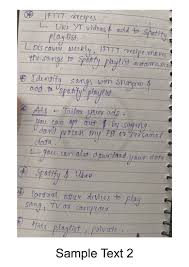 IFTTT recipes
Like YT videos & add to Spotify
playlist.
Discover weekly, IFTTT recipe
the songs to Spotify playlist
Identify songs with Shazam &
add to "Spotify" playlist
Ads - Tailor your ads.
you can opt out by saying
"don't process my FB or personal
data.
you can also download your data
Spotify & Uber
other devices to play
song, TV or computer
playlist, private.
Sample Text 2